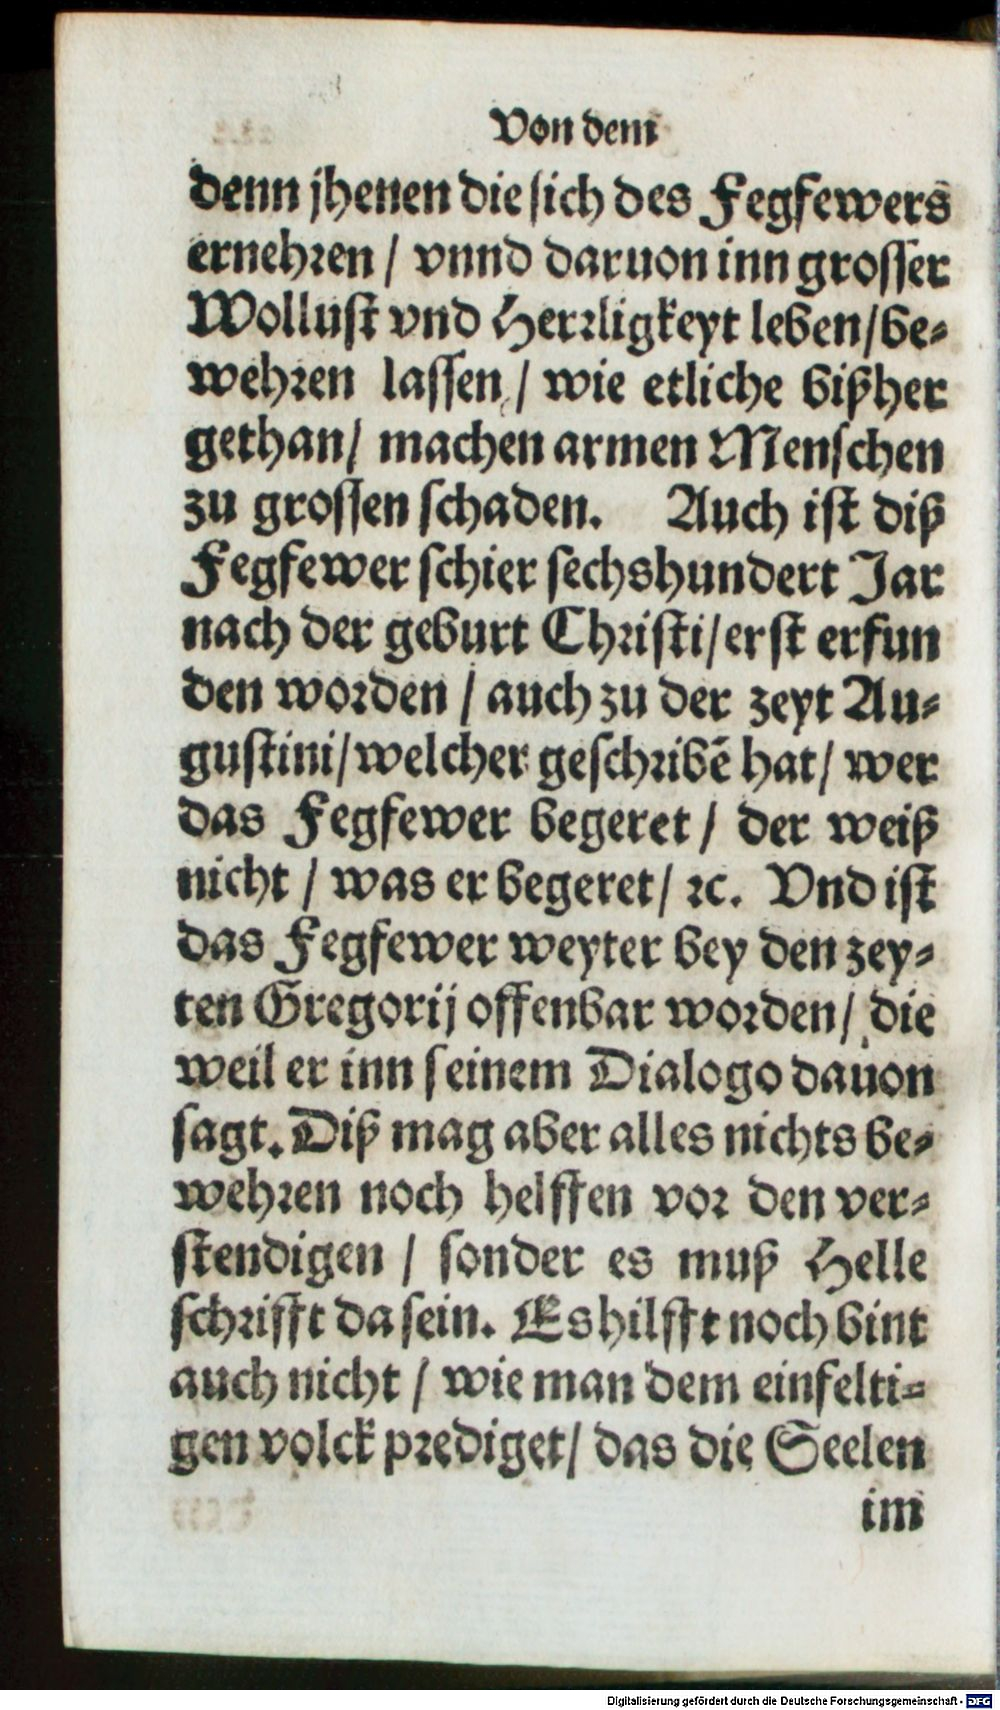 Von dem
denn jhenen die sich des Fegfewers
ernehren / vnnd daruon inn grosser
Wollust vnd Herrligkeyt leben/be-
wehren lassen / wie etliche bißher
gethan/ machen armen Menschen
zu grossen schaden. Auch ist diß
Fegfewer schier sechshundert Jar
nach der geburt Christi/erst erfun
den worden / auch zu der zeyt Au-
gustini/welcher geschribē hat/ wer
das Fegfewer begeret / der weiß
nicht / was er begeret/ ꝛc. Vnd ist
das Fegfewer weyter bey den zey-
ten Gregorij offenbar worden/ die
weil er inn seinem Dialogo dauon
sagt. Diß mag aber alles nichts be-
wehren noch helffen vor den ver-
stendigen / sonder es muß Helle
schrifft da sein. Es hilfft noch bint
auch nicht / wie man dem einfelti-
gen volck prediget/ das die Seelen
im
Digitalisierung gefördert durch die Deutsche Forschungsgemeinschaft - DFG